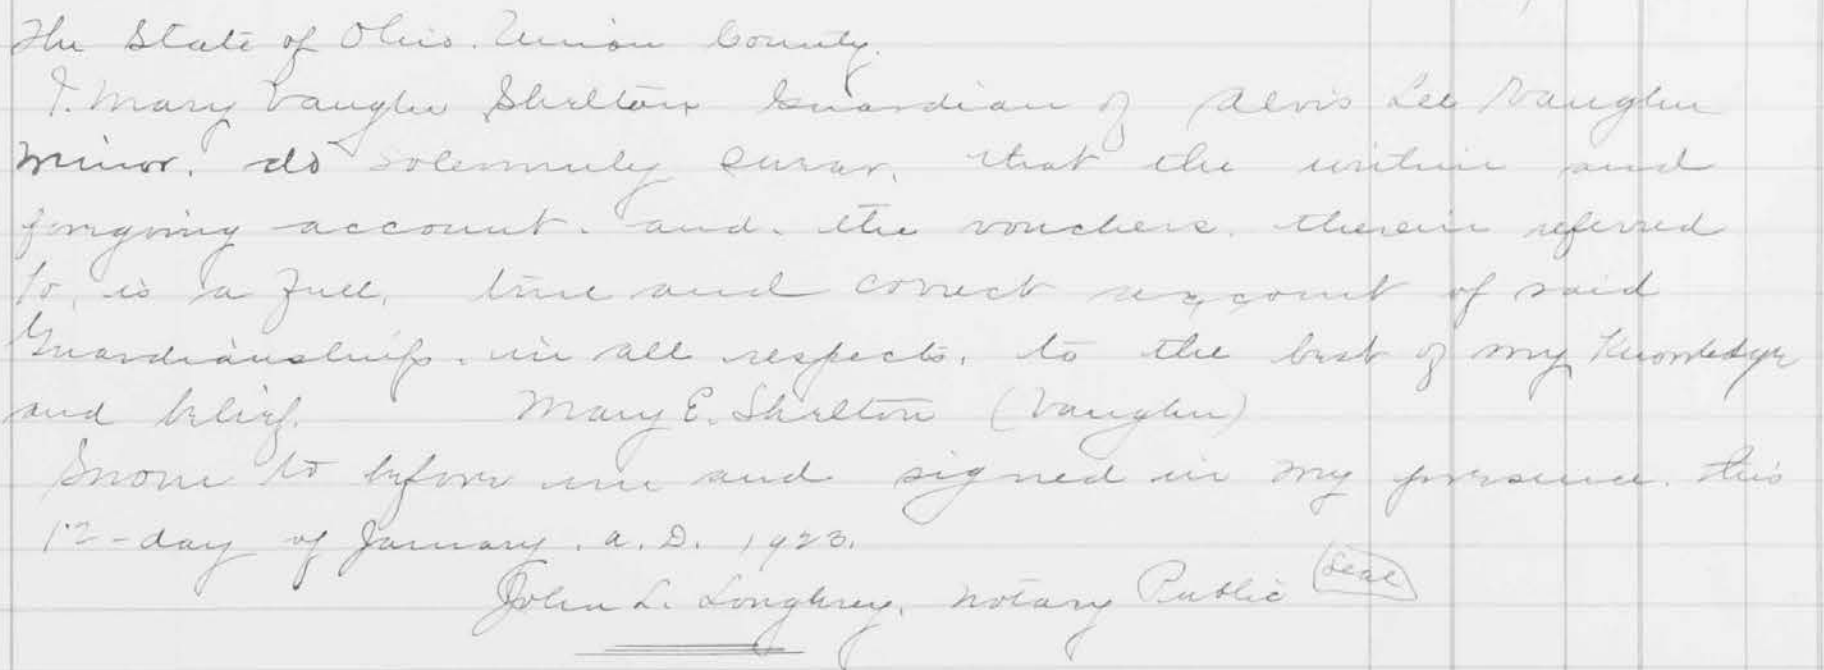 The State of Ohio. Union County.
I. Mary Vaughn Shelton Guardian of Alvis Lee Vaughn
minor. do solemnly swear, that the within and
foregoing account. and. the vouchers. therein referred
to, is a full, true and correct account of said
Guardianship. in all respects, to the best of my Knowledge
and belief. Mary E. Shelton (Vaughn)
Sworn to before me and signed in my presence. this
day of January. A.D. 1923.
John L. Loughrey, Notary Public (Seal)